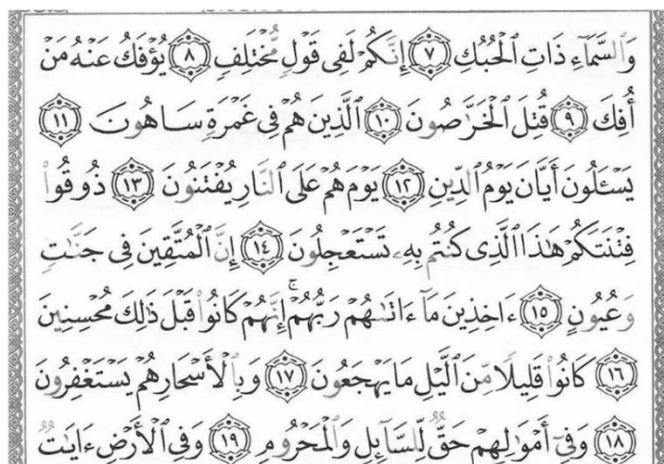 وَٱلسَّمَآءِ ذَاتِ ٱلْحُبُكِ ٧ إِنَّكُمْ لَفِى قَوْلٍ مُّخْتَلِفٍ ٨ يُؤْفَكُ عَنْهُ مَنْ
أُفِكَ ٩ قُتِلَ ٱلْخَرَّٰصُونَ ١٠ ٱلَّذِينَ هُمْ فِى غَمْرَةٍ سَاهُونَ ١١
يَسْـَٔلُونَ أَيَّانَ يَوْمُ ٱلدِّينِ ١٢ يَوْمَ هُمْ عَلَى ٱلنَّارِ يُفْتَنُونَ ١٣ ذُوقُوا۟
فِتْنَتَكُمْ هَٰذَا ٱلَّذِى كُنتُم بِهِۦ تَسْتَعْجِلُونَ ١٤ إِنَّ ٱلْمُتَّقِينَ فِى جَنَّٰتٍ
وَعُيُونٍ ١٥ ءَاخِذِينَ مَآ ءَاتَىٰهُمْ رَبُّهُمْ ۚ إِنَّهُمْ كَانُوا۟ قَبْلَ ذَٰلِكَ مُحْسِنِينَ
١٦ كَانُوا۟ قَلِيلًا مِّنَ ٱلَّيْلِ مَا يَهْجَعُونَ ١٧ وَبِٱلْأَسْحَارِ هُمْ يَسْتَغْفِرُونَ
١٨ وَفِىٓ أَمْوَٰلِهِمْ حَقٌّ لِّلسَّآئِلِ وَٱلْمَحْرُومِ ١٩ وَفِى ٱلْأَرْضِ ءَايَٰتٌ